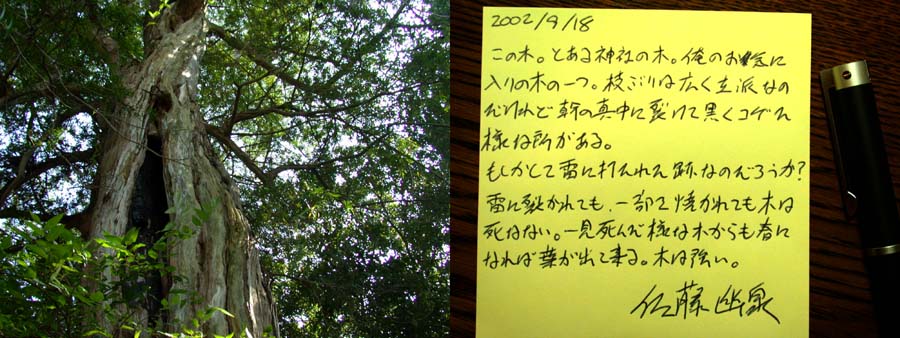 2002/9/18
この木。とある神社の木。俺のお気に
入りの木の一つ。枝ぶりは広く立派なの
だけれど幹の真中に裂けて黒くコゲた
様な所がある。
もしかして雷に打たれた跡なのだろうか?
雷に裂かれても、一部を焼かれても木は
死なない。一見死んだ様な木からも春に
なれば葉が出て来る。木は強い。
佐藤幽泉